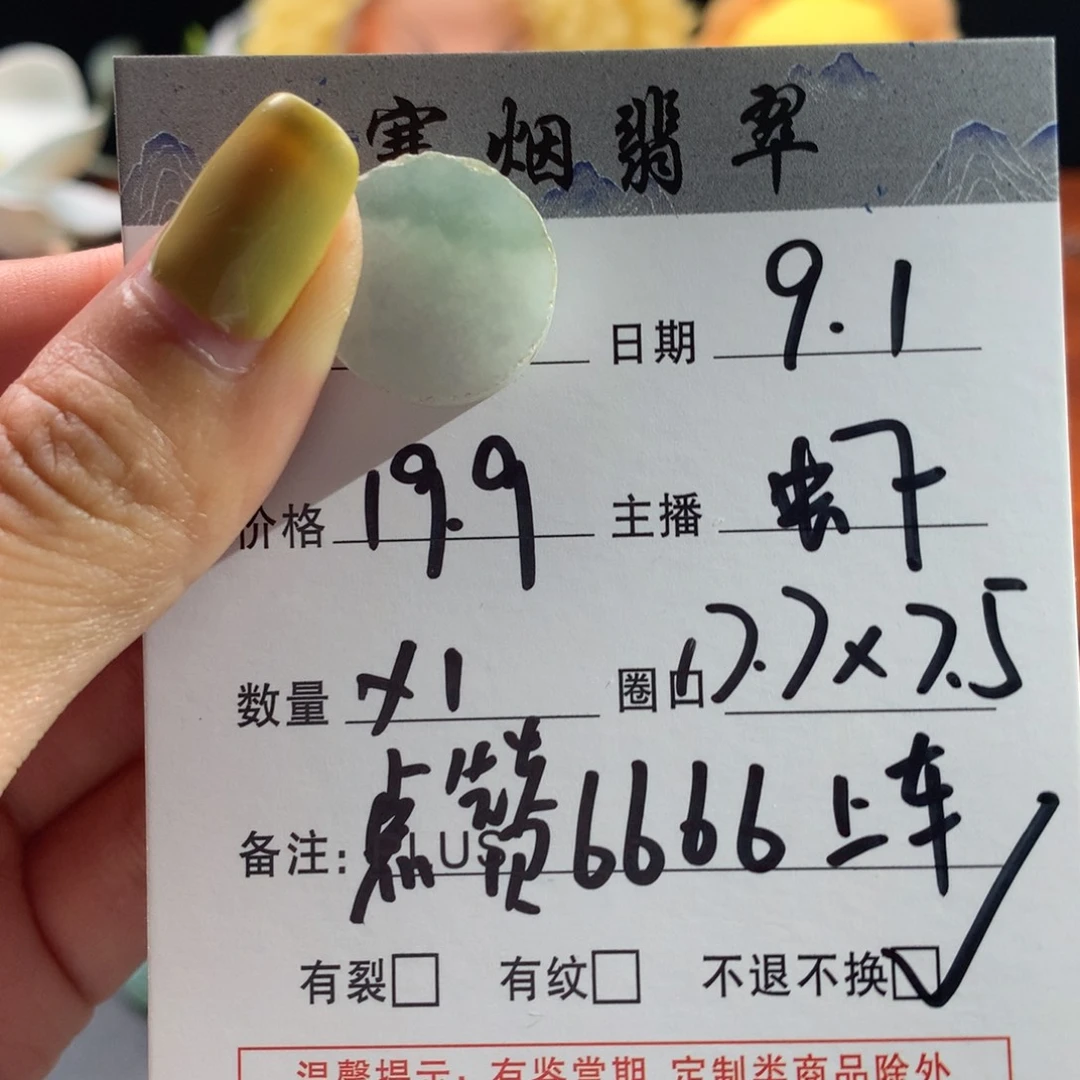 寒烟翡翠
日期 9.1
价格 19.9 主播
数量 x1 圈口 17.7x7.5
备注: 点赞6666上车
有裂 有纹 不退不换
温馨提示: 有鉴赏期 定制类商品除外